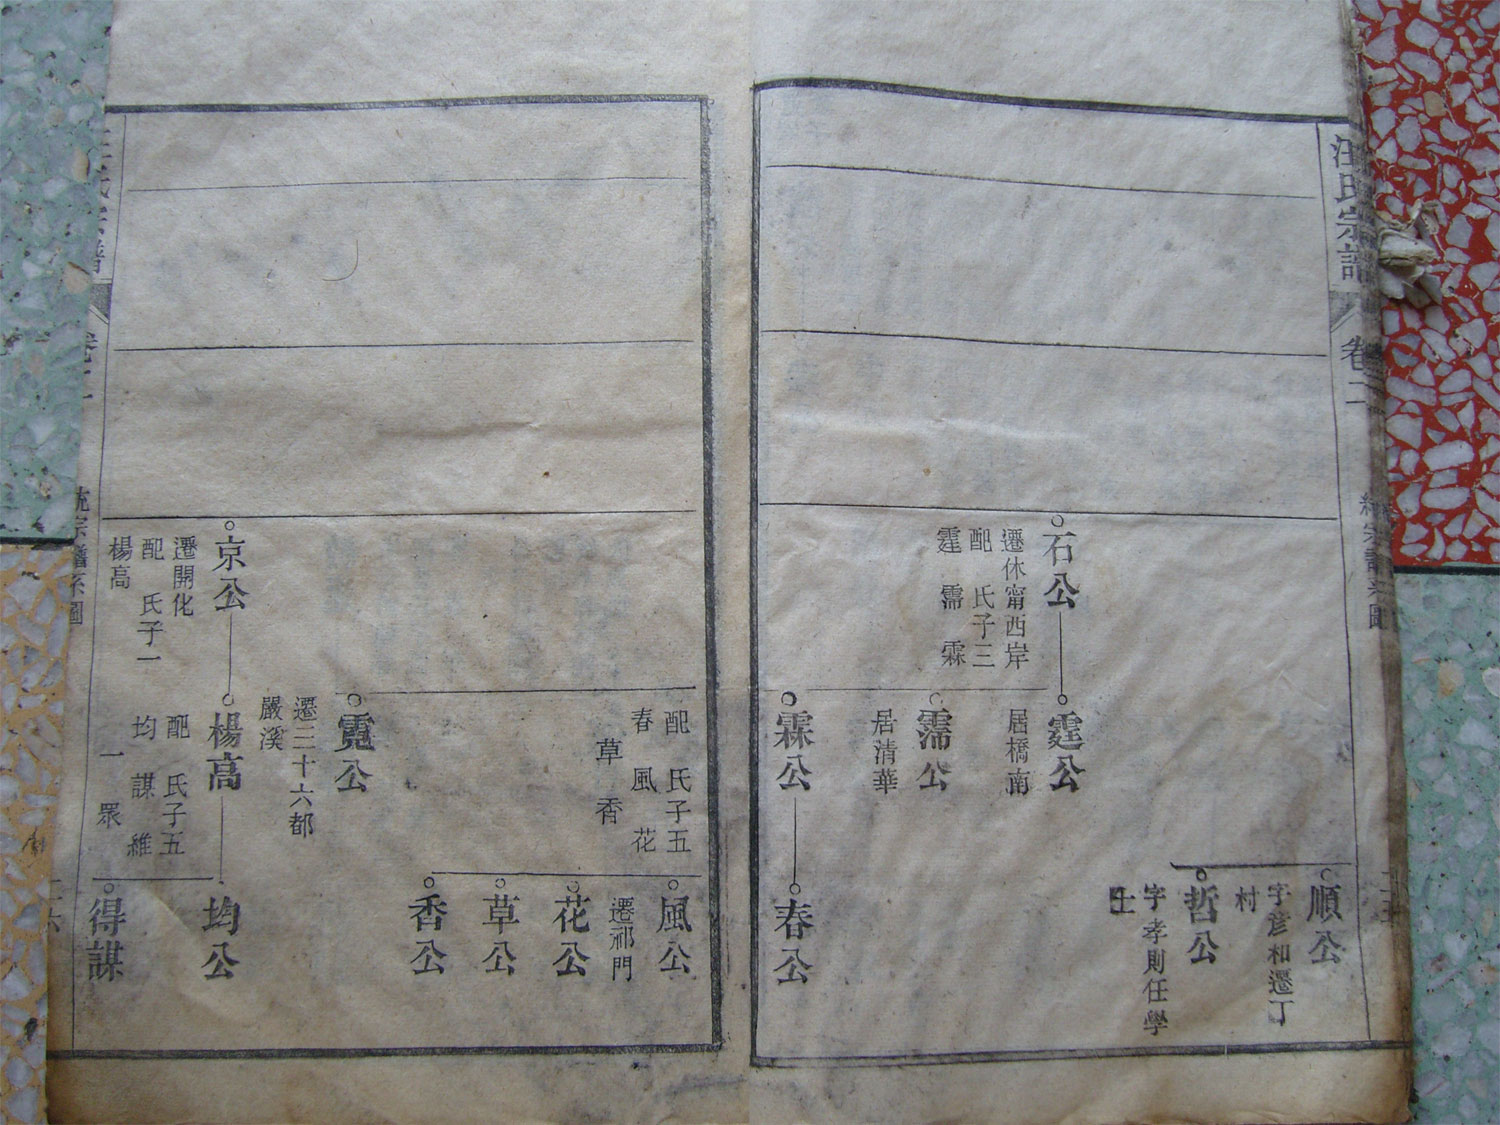 汪氏宗譜
卷二
統宗譜系圖
順公
字彦和遷丁
村
哲公
字孝則任學
士
石公
遷休甯西岸
配 氏子三
霆 霈 霖
霆公
居橋南
霈公
居清華
霖公
配 氏子五
春 風 花
草 香
春公
風公
遷祁門
花公
草公
香公
霓公
遷三十六都
嚴溪
京公
遷開化
配 氏子一
楊高
楊高
配 氏子五
均 謀 維
一 眾
均公
得謀
汪氏宗譜
卷二
統宗譜系圖
二六